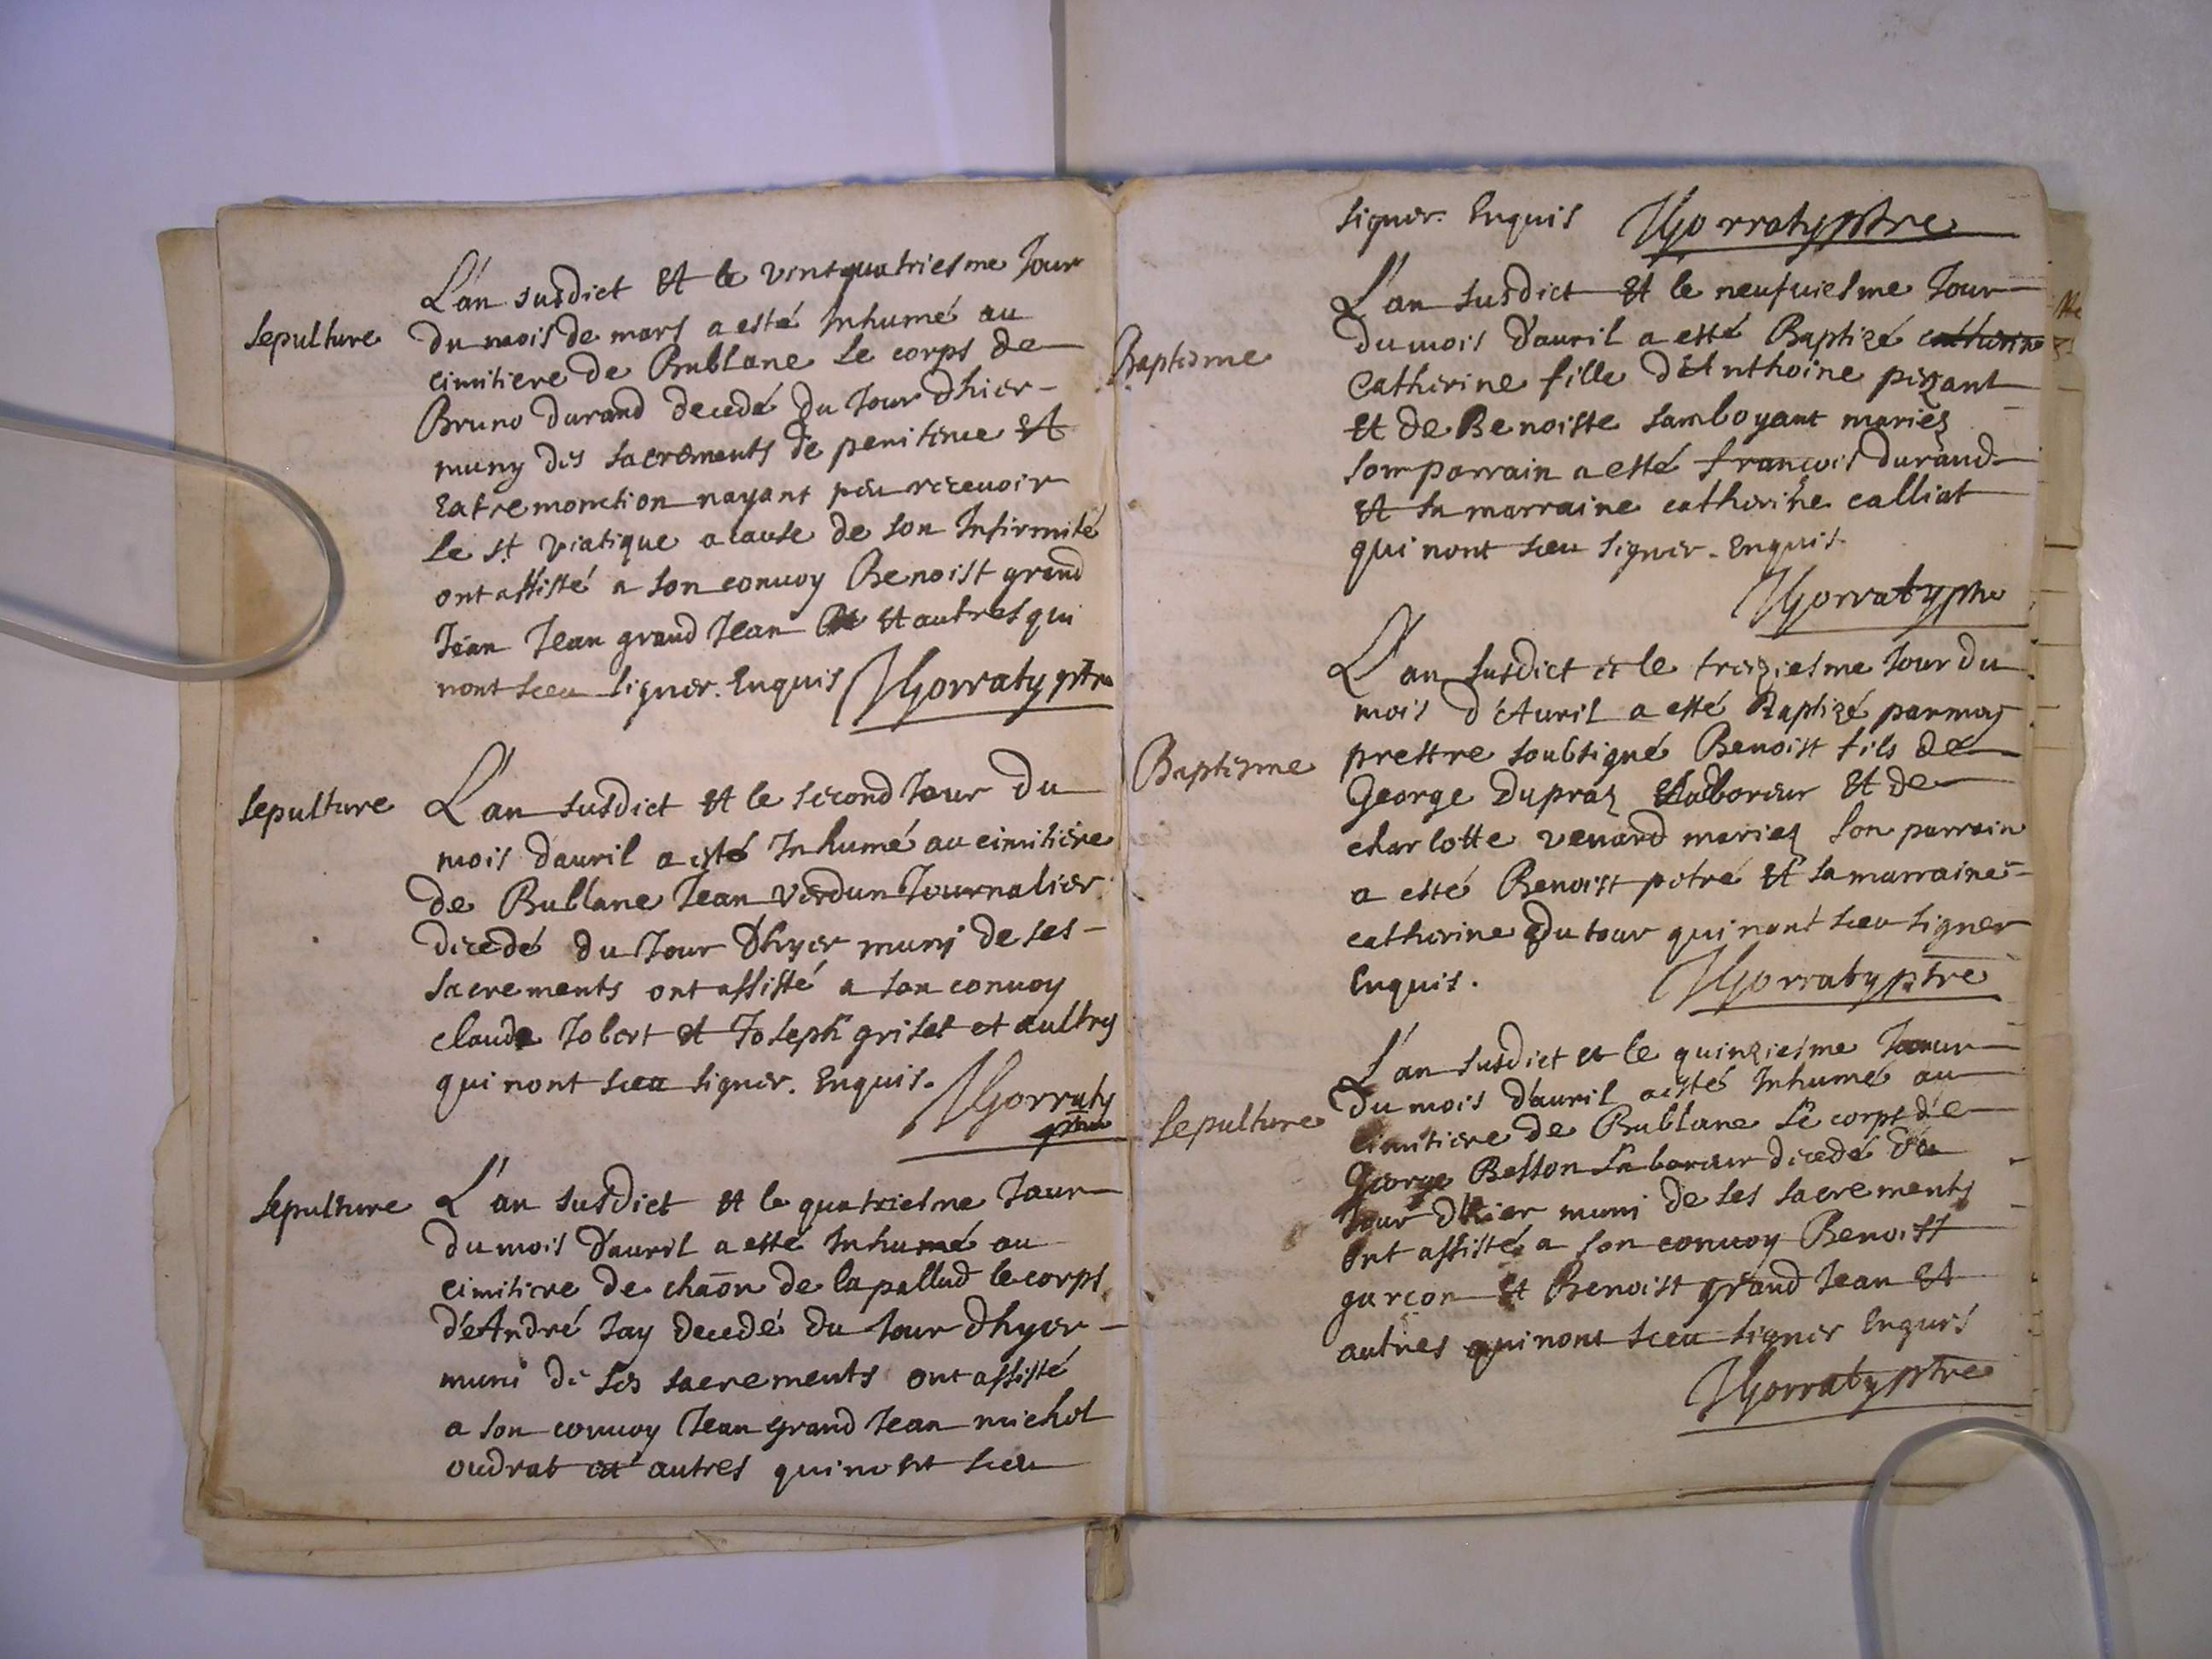 L'an susdict Et le vintquatriesme Jour
Sepulture
du mois de mars a esté Inhumé au
cimitiere de Bublane Le corps de
Bruno durand decedé du Jour dhier
muny des sacrements de penitence Et
Extremonction nayant peu recevoir
Le St. viatique a cause de son Infirmité
ont assisté a son convoy Benoist grand
Jean Jean grand Jean Et autres qui
nont sceu signer. Enquis JGorraty ptre
Sepulture
L'an susdict Et le second Jour du
mois dauril a esté Inhumé au cimitiere
de Bublane Jean Verdun Journalier
decedé du Jour dhyer muni de ses
sacrements ont assisté a son convoy
claude Jobert Et Joseph griset et aultres
qui nont sceu signer. Enquis. JGorraty
ptre
Sepulture
L'an susdict Et le quatriesme Jour
du mois d'auril a esté Inhumé au
cimitiere de chaōn de la pallud le corps
d'André Jay decedé du Jour dhyer
muni de ses sacrements ont assisté
a son convoy Jean grand Jean michel
oudrat et autres qui nont sceu
signer. Enquis JGorraty ptre
L'an susdict Et le neufuiesme Jour
Baptesme
du mois d'auril a esté Baptizé catherine
Catherine fille d'Anthoine pezant
Et de Benoiste Samboyant mariez
son parrain a esté francois durand
Et sa marraine catherine calliat
qui nont sceu signer. Enquis.
JGorraty ptre
L'an susdict et le treziesme Jour du
mois d'Auril a esté Baptizé par moy
Baptesme
prestre soubsigné Benoist fils de
George Dupraz Laboreur Et de
charlotte venard mariez son parrain
a esté Benoist petré Et sa marraine
catherine dutour qui nont sceu signer
Enquis. JGorraty ptre
L'an susdict et le quinziesme Jour
du mois d'auril a esté Inhumé au
Sepulture
cimitiere de Bublane Le corps de
George Besson Laboreur decedé du
Jour dhier muni de ses sacrements
ont assisté a son convoy Benoist
garçon Et Benoist grand Jean Et
autres qui nont sceu signer Enquis
JGorraty ptre